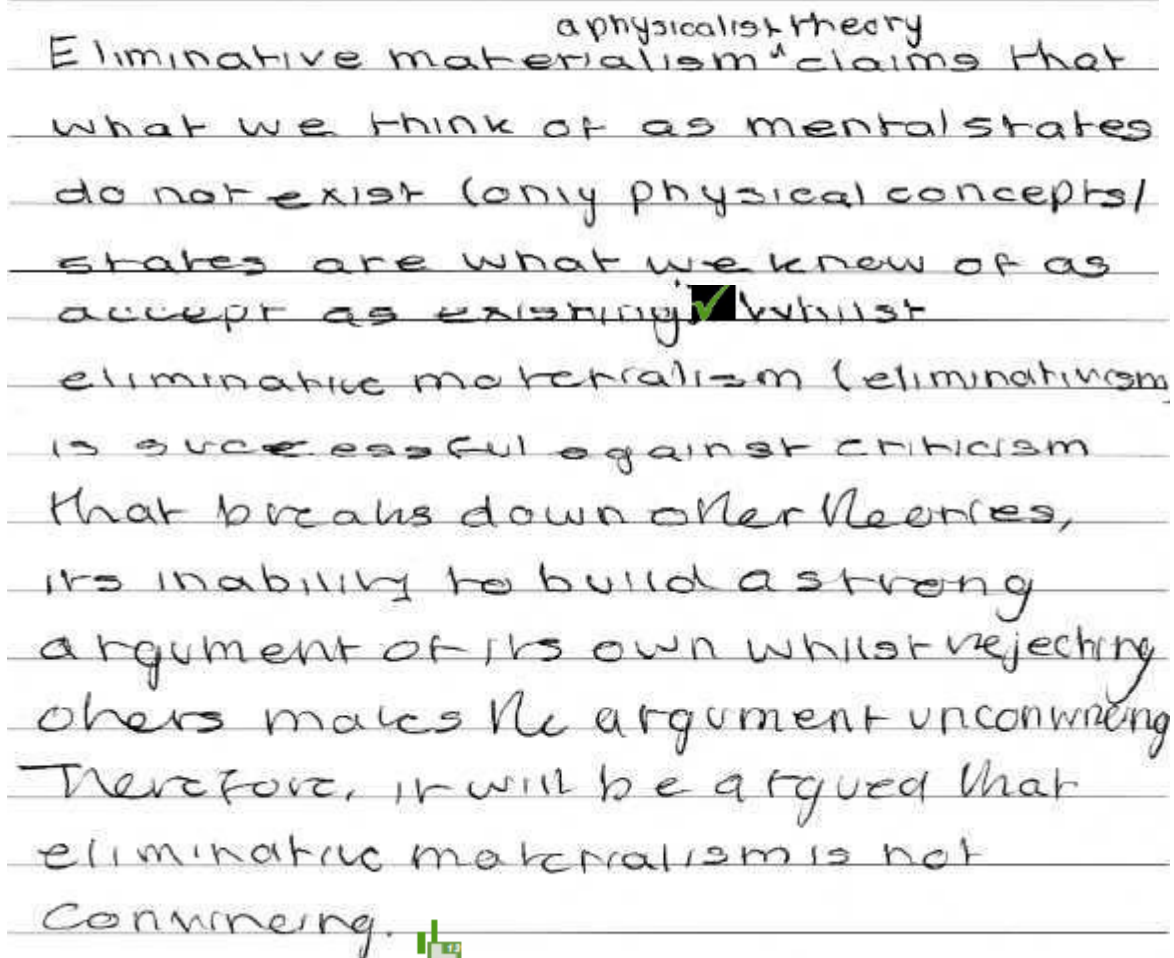 a physicalist theory
Eliminative materialism ^ claims that
what we think of as mental states
do not exist (only physical concepts/
states are what we know of as
accept as existing). Whilst
eliminative materialism (eliminativism)
is successful against criticism
that breaks down other theories,
its inability to build a strong
argument of its own whilst rejecting
ohers makes the argument unconvincing
Therefore, it will be argued that
eliminative materialism is not
convincing.